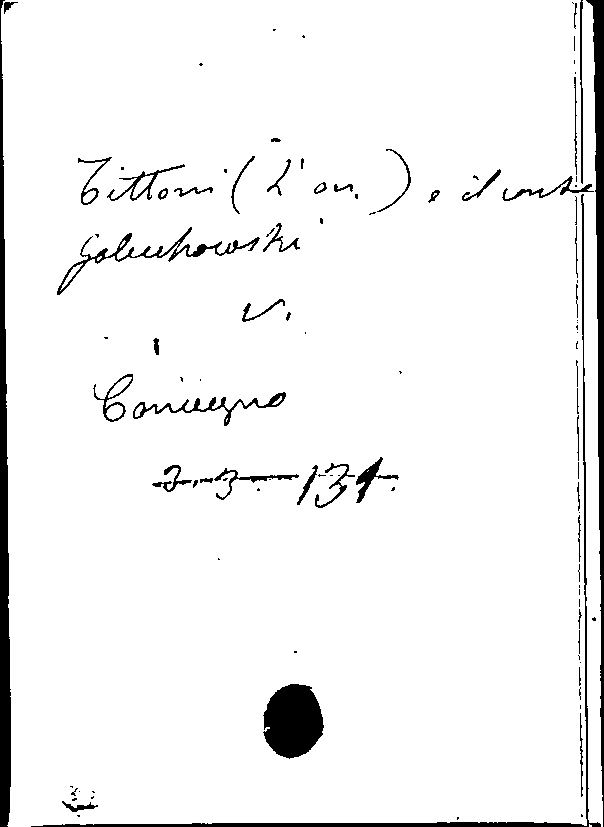 Tittoni (L'on.) e il conte
Goluchowski
V.
Convegno
3.3. 131.